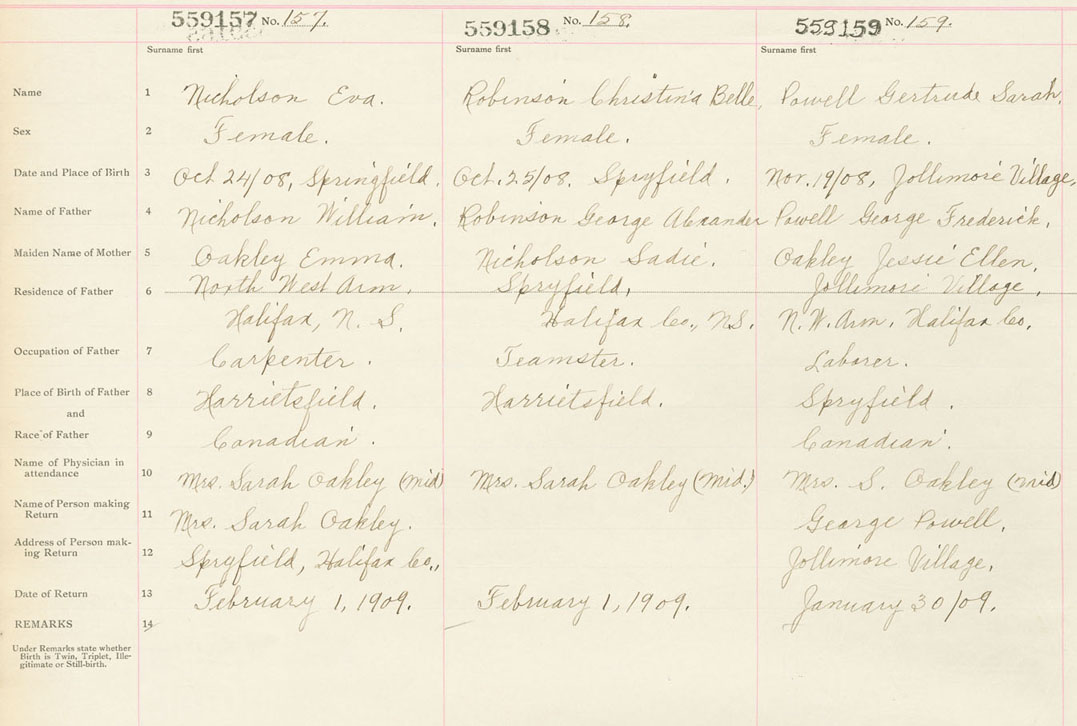 559157 No. 157. 559158 No. 158. 559159 No. 159.
Surname first Surname first Surname first
Name 1 Nicholson Eva. Robinson Christina Belle, Powell Gertrude Sarah.
Sex 2 Female. Female. Female.
Date and Place of Birth 3 Oct 24/08, Springfield. Oct. 25/08. Spryfield. Nov. 19/08, Jollimore Village,
Name of Father 4 Nicholson William. Robinson George Alexander Powell George Frederick.
Maiden Name of Mother 5 Oakley Emma. Nicholson Sadie. Oakley Jessie Ellen.
Residence of Father 6 North West Arm, Spryfield, Jollimore Village,
Halifax, N. S. Halifax Co., N.S. N.W. Arm. Halifax Co.
Occupation of Father 7 Carpenter. Teamster. Laborer.
Place of Birth of Father 8 Harrietsfield. Harrietsfield. Spryfield.
and
Race of Father 9 Canadian. Canadian.
Name of Physician in
attendance 10 Mrs. Sarah Oakley (mid) Mrs. Sarah Oakley (Mid.) Mrs. S. Oakley (mid)
Name of Person making
Return 11 Mrs. Sarah Oakley. George Powell.
Address of Person mak-
ing Return 12 Spryfield, Halifax Co., Jollimore Village.
Date of Return 13 February 1, 1909. February 1, 1909. January 30/09.
REMARKS 14
Under Remarks state whether
Birth is Twin, Triplet, Ille-
gitimate or Still-birth.